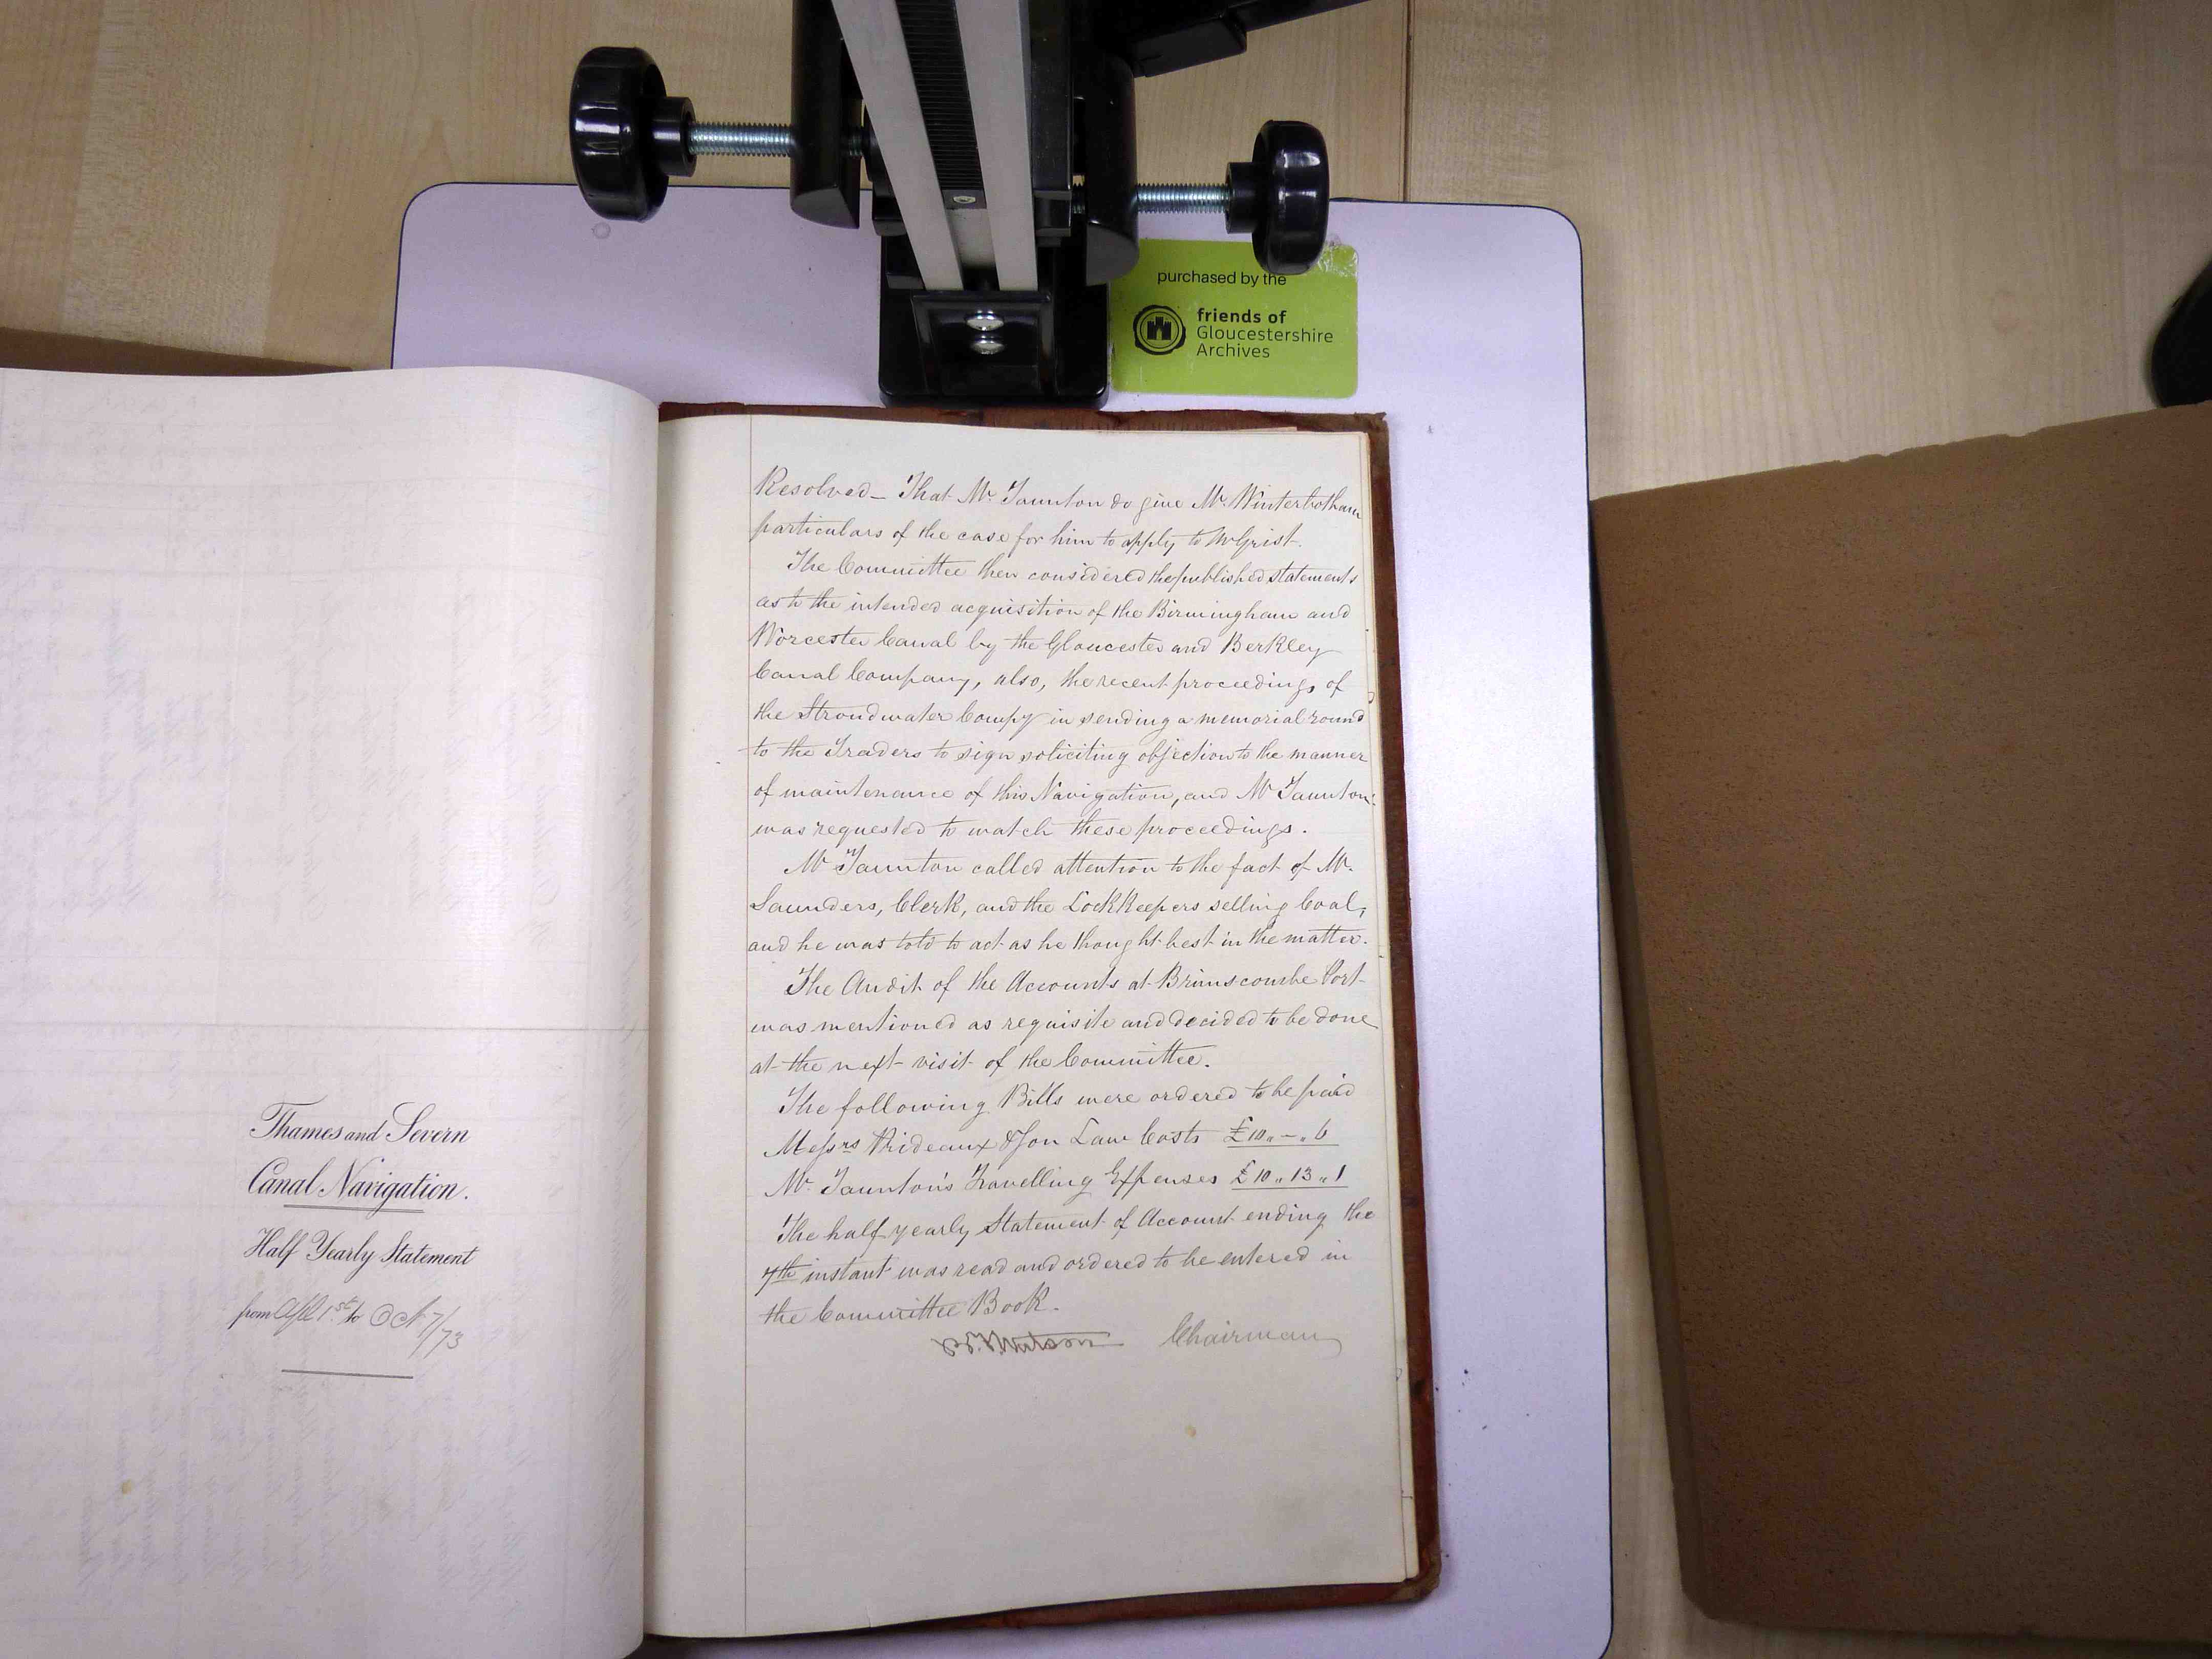 purchased by the
friends of
Gloucestershire
Archives
Thames and Severn
Canal Navigation.
Half Yearly Statement
from Apl 1st to Oct 7/73
Resolved _ That Mr. Taunton do give Mr. Winterbotham
particulars of the case for him to apply to Mr Grist.
The Committee then considered the published statements
as to the intended acquisition of the Birmingham and
Worcester Canal by the Gloucester and Berkley
Canal Company, also, the recent proceedings of
the Stroudwater Compy in sending a memorial round
to the Traders to sign soliciting objection to the manner
of maintenance of this Navigation, and Mr Taunton
was requested to watch these proceedings.
Mr Taunton called attention to the fact of Mr.
Saunders, Clerk, and the LockKeepers selling Coal,
and he was told to act as he thought best in the matter.
The Audit of the Accounts at Brimscombe Port
was mentioned as requisite and decided to be done
at the next visit of the Committee.
The following Bills were ordered to be paid
Messrs Prideaux & Son Law Costs £10 „ – „ 6
Mr. Taunton's Travelling Expenses £10 „ 13 „ 1
The half yearly Statement of Account ending the
7th instant was read and ordered to be entered in
the Committee Book.
Chairman